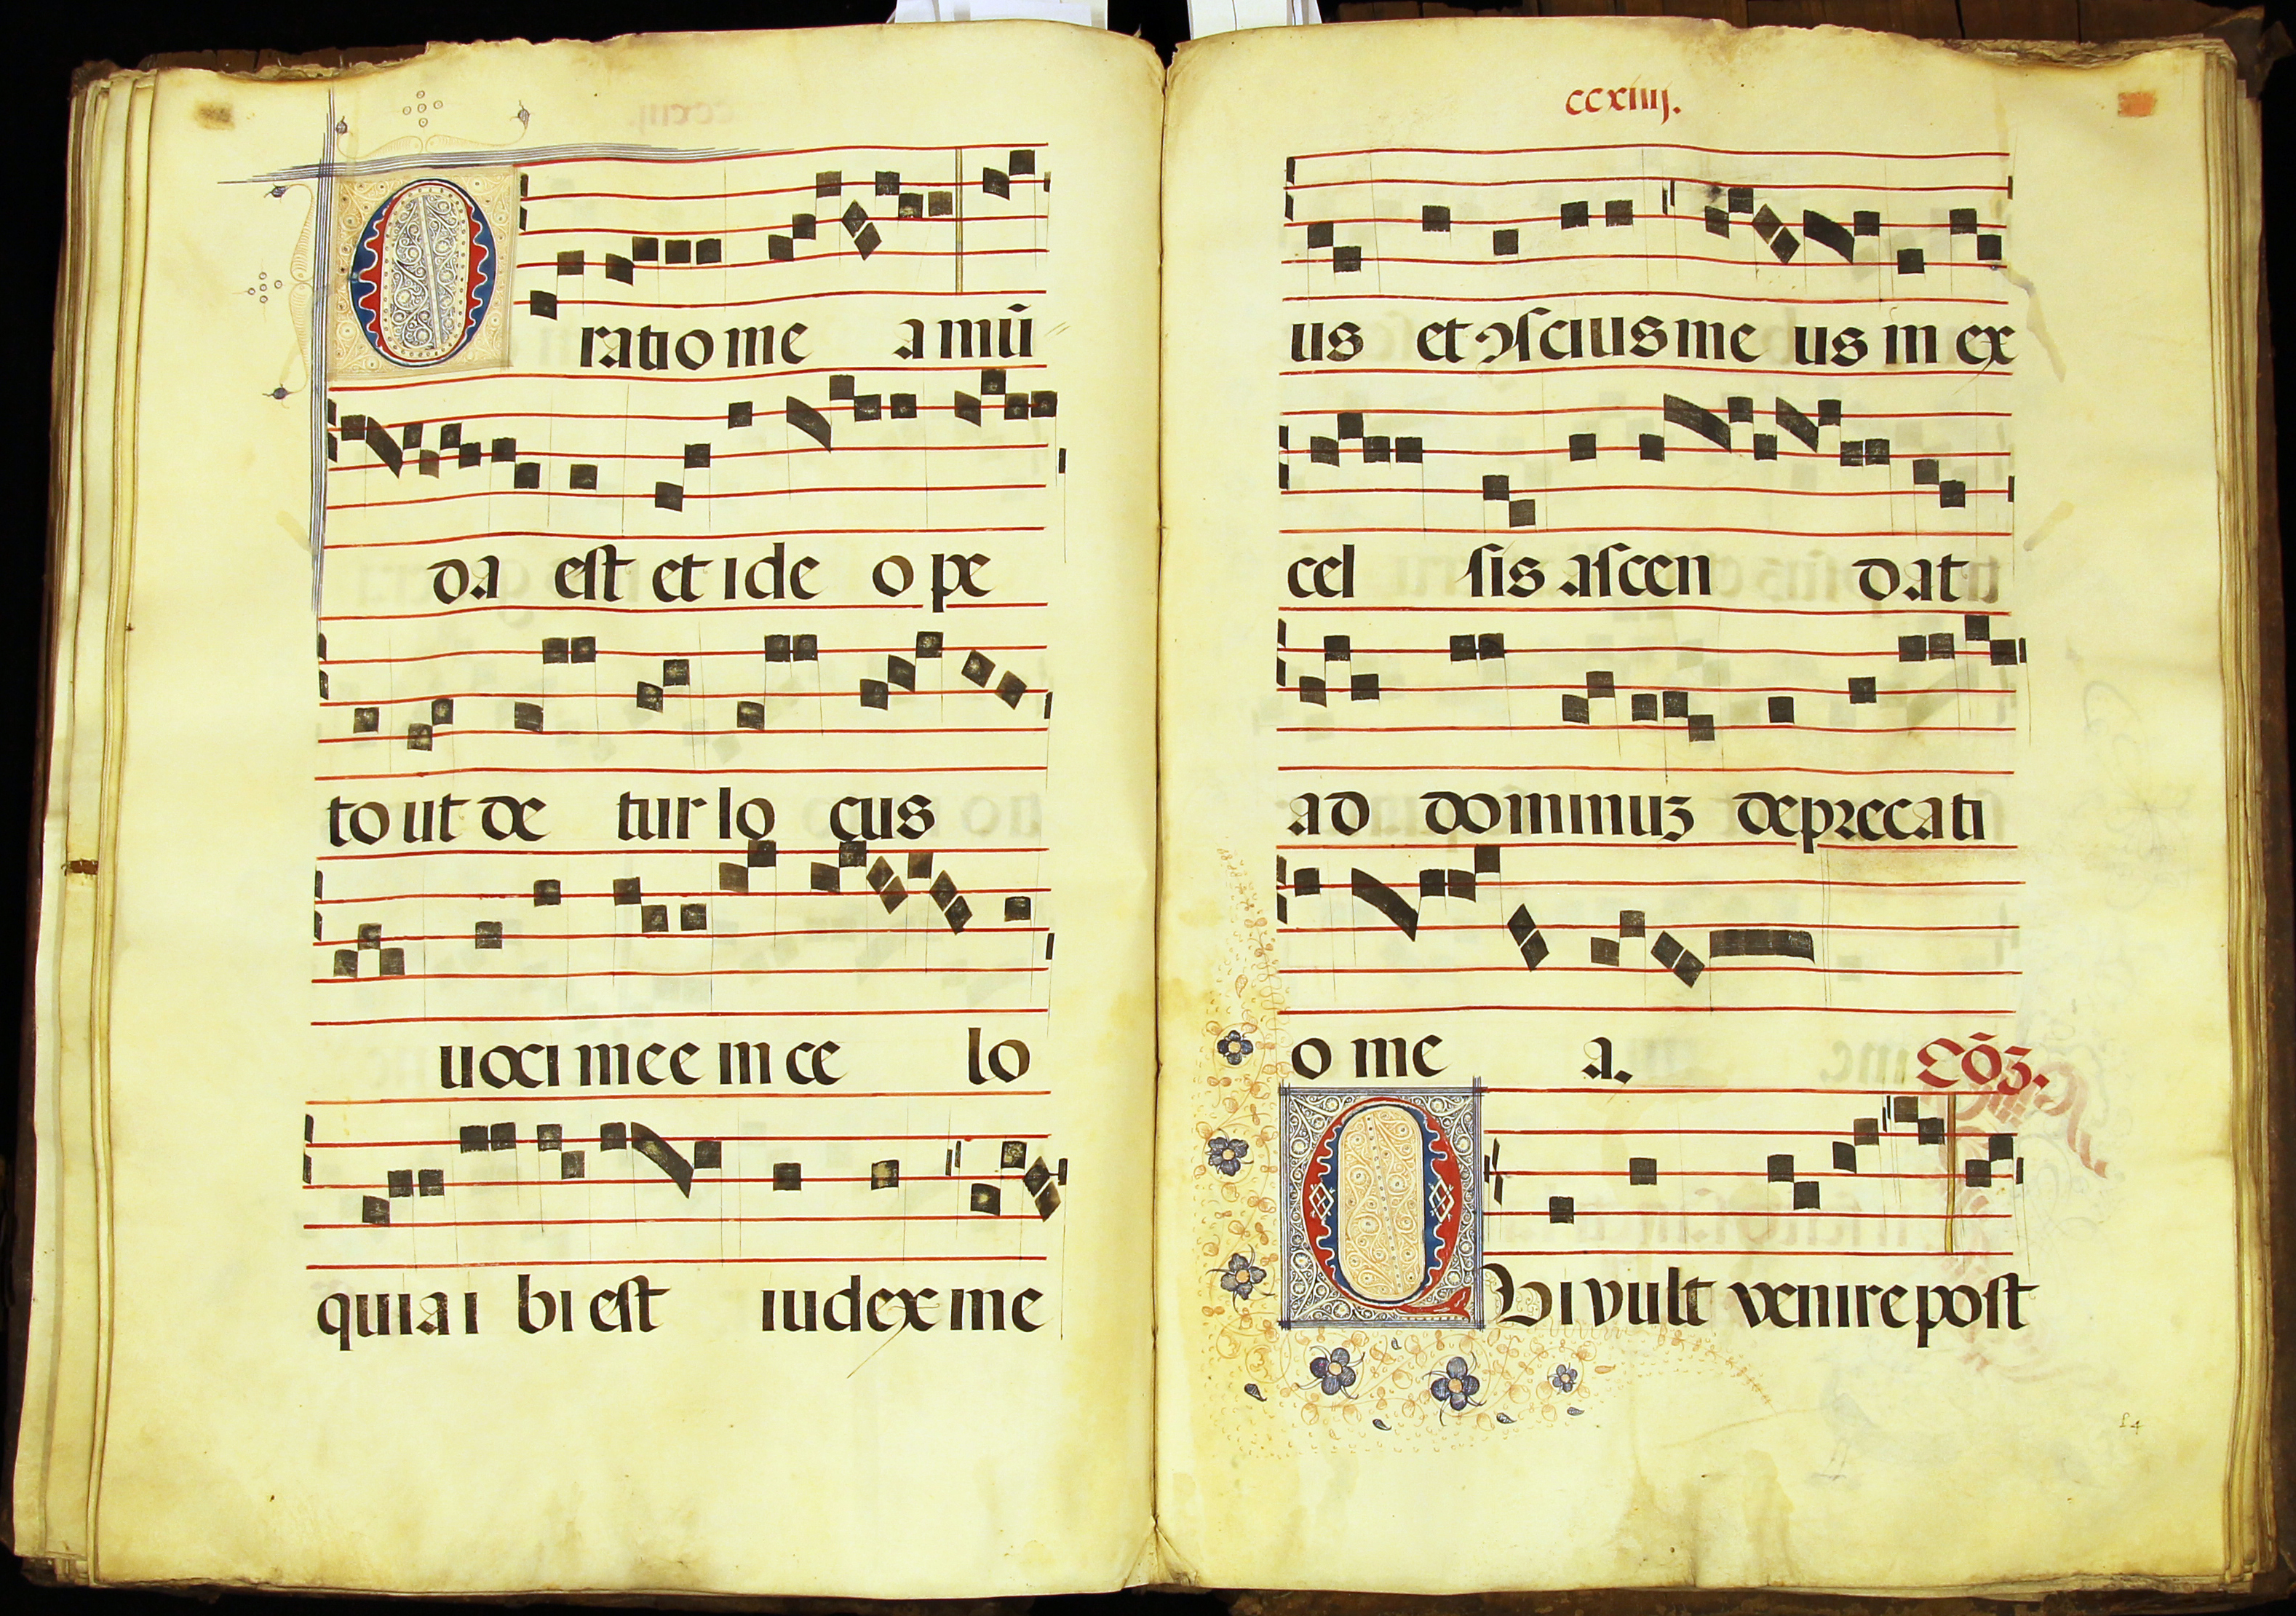 Oratio me a mū
da est et ide o pe
to ut de tur lo cus
uoci mee in ce lo
quia i bi est iudex me
ccxiiij.
us et ꝯscius me us in ex
cel sis ascen dat
ad dominuꝫ deprecati
o me a. Cōꝫ.
QVi vult venire post